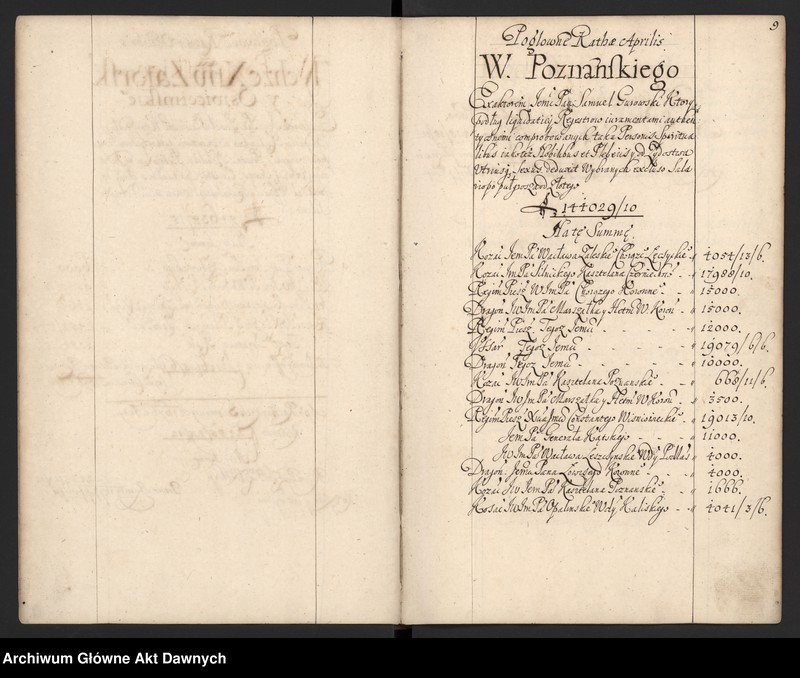 9
Pogłowne Rathæ Aprilis
W. Poznańskiego
Exaktorem Jemć Pan Samuel Gurowski Ktory
podług liquidatiey Regestrow iuramentami authen
tycznemi comprobowanych tak a Personis Spiritua
libus iako też Nobilibus et Plebeis y od Zydostwa
Utriusq Sexus deduxit Wybranych excluso Sala
rio po puł grosza od złotego
144029/10
Na tę Summę
Kozac Jem Pa Wacława Zaleskie Chorąże Łęczyckie 4054/13/6.
Kozac Im Pa Silnickiego Kasztelana Czernichow 17988/10.
Regim Piesz W Im Pa Chorąże Koronne 15000.
Dragon Jw Im Pa Marszałka y Hetm W. Koron 15000.
Regim Piesz Tegoż Jemci 12000.
Ussar Tegoż Jemci 19079/6/6.
Dragon Tegoż Jemci 10000.
Kozac Jw Im Pa Kasztelana Poznanskie 668/11/6.
Dragon Jw Im Pa Marszałka y Hetm W Koron 3500.
Regim Piesz Xcia Jmci Constantego Wisniowiecki 19013/10.
Jem Pa Generała Kątskiego 11000.
Jw Im Pa Wacława Leszczynskie Wdy Podlas 4000.
Dragon Jemci Pana Koronne 4000.
Kozac Jw Jem Pa Kasztelana Poznanskie 1666.
Kozac Jw Im Pa Opalinskie Wdy Kaliskiego 4041/3/6.
Archiwum Główne Akt Dawnych